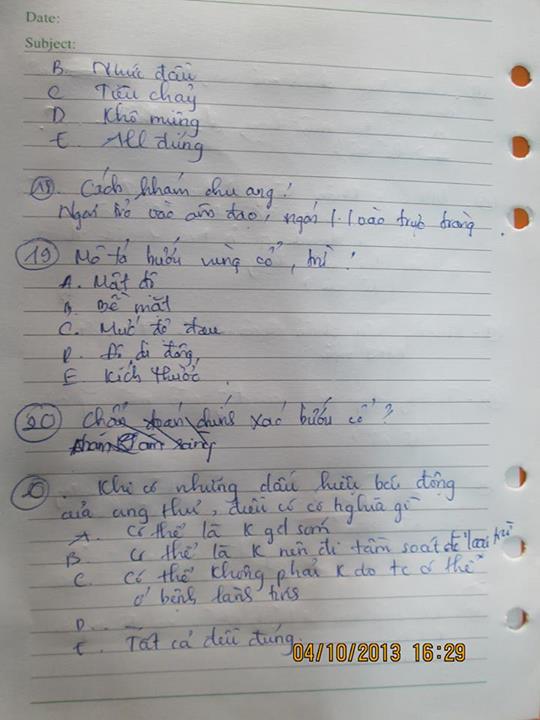 Date:
Subject:
B. Nhức đầu
C Tiêu chảy
D Khô miệng
E. All đúng
18. Cách khám chu ang!
Ngón trỏ vào âm đạo, ngón (-) vào trực tràng
19 Mô tả bướu vùng cổ, trừ!
A. Mật độ
B. Bề mặt
C. Mức độ đau
D. Độ di động,
E Kích thước
20 Chẩn đoán chính xác bướu cổ?
khám lâm sàng
20. Khi có những dấu hiệu báo động
của ung thư, điều có có nghĩa gì
A. Có thể là K gđ sớm
B. có thể là K nên đi tầm soát để loại trừ
C. Có thể không phải K do tc có thể
ở bệnh lành tính
D. ...
E. Tất cả đều đúng.
04/10/2013 16:29